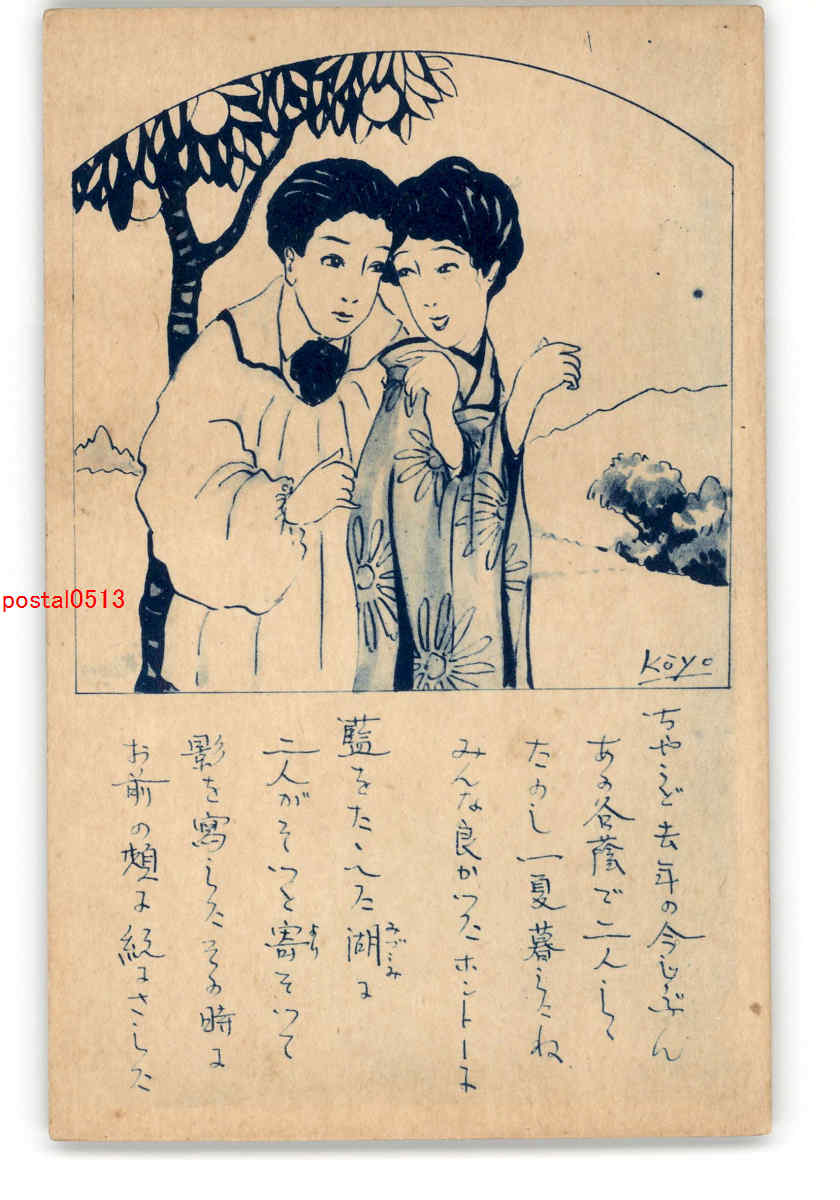 postal0513
Kōyo
ちやうど去年の今じぶん
あの谷蔭で二人して
たのし一夏暮らしたね
みんな良かつたホントーに
藍をたゝへた湖に
みづうみ
二人がそつと寄そつて
より
影を寫したその時に
お前の頬に紅にさした